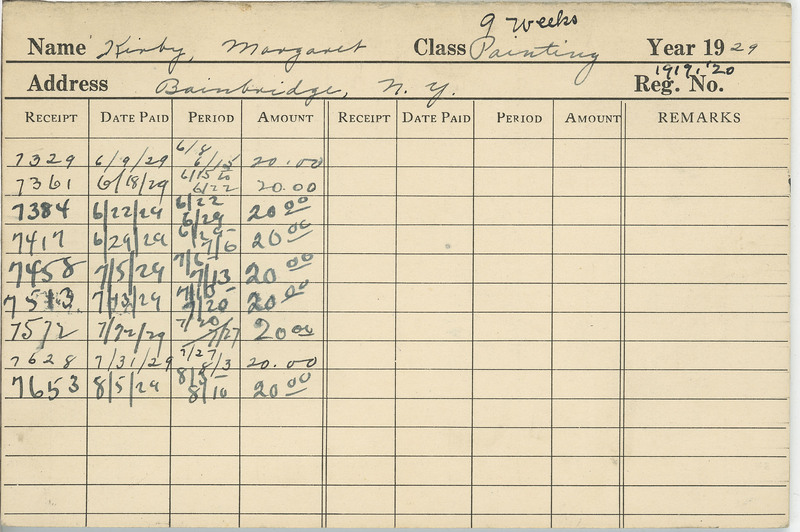 9 weeks
Name Kirby, Margaret Class Painting Year 1929
1919, '20
Address Bainbridge, N. Y. Reg. No.
RECEIPT DATE PAID PERIOD AMOUNT RECEIPT DATE PAID PERIOD AMOUNT REMARKS
7329 6/9/29 6/8 6/15 20.00
7361 6/18/29 6/15 to 6/22 20.00
7384 6/22/29 6/22 6/29 20 00
7417 6/29/29 6/29- 7/6 20 00
7458 7/5/29 7/6- 7/13 20 00
7513 7/13/29 7/20 20 00
7572 7/22/29 7/20 7/27 20 00
7628 7/31/29 7/27 8/3 20.00
7653 8/5/29 8/3 8/10 20 00